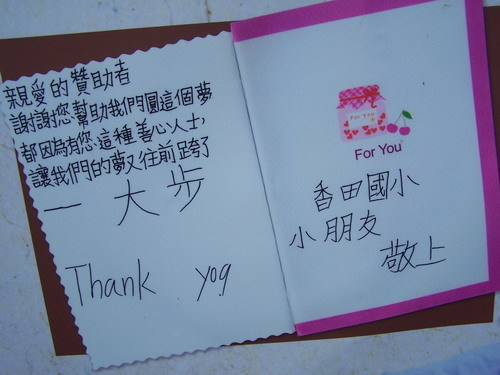 親愛的贊助者
謝謝您幫助我們圓這個夢
都因為有您這種善心人士,
讓我們的夢又往前跨了
一大步
Thank yog
For You
For You
香田國小
小朋友
敬上